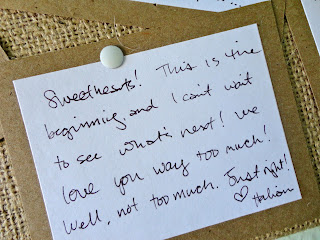 Sweethearts! This is the
beginning, and I can't wait
to see what's next! We
love you way too much!
Well, not too much. Just right!
♡